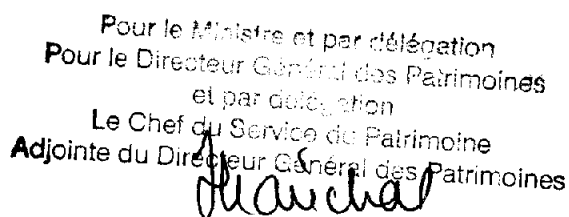 Pour le Ministre et par délégation
Pour le Directeur Général des Patrimoines
et par délégation
Le Chef du Service du Patrimoine
Adjointe du Directeur Général des Patrimoines